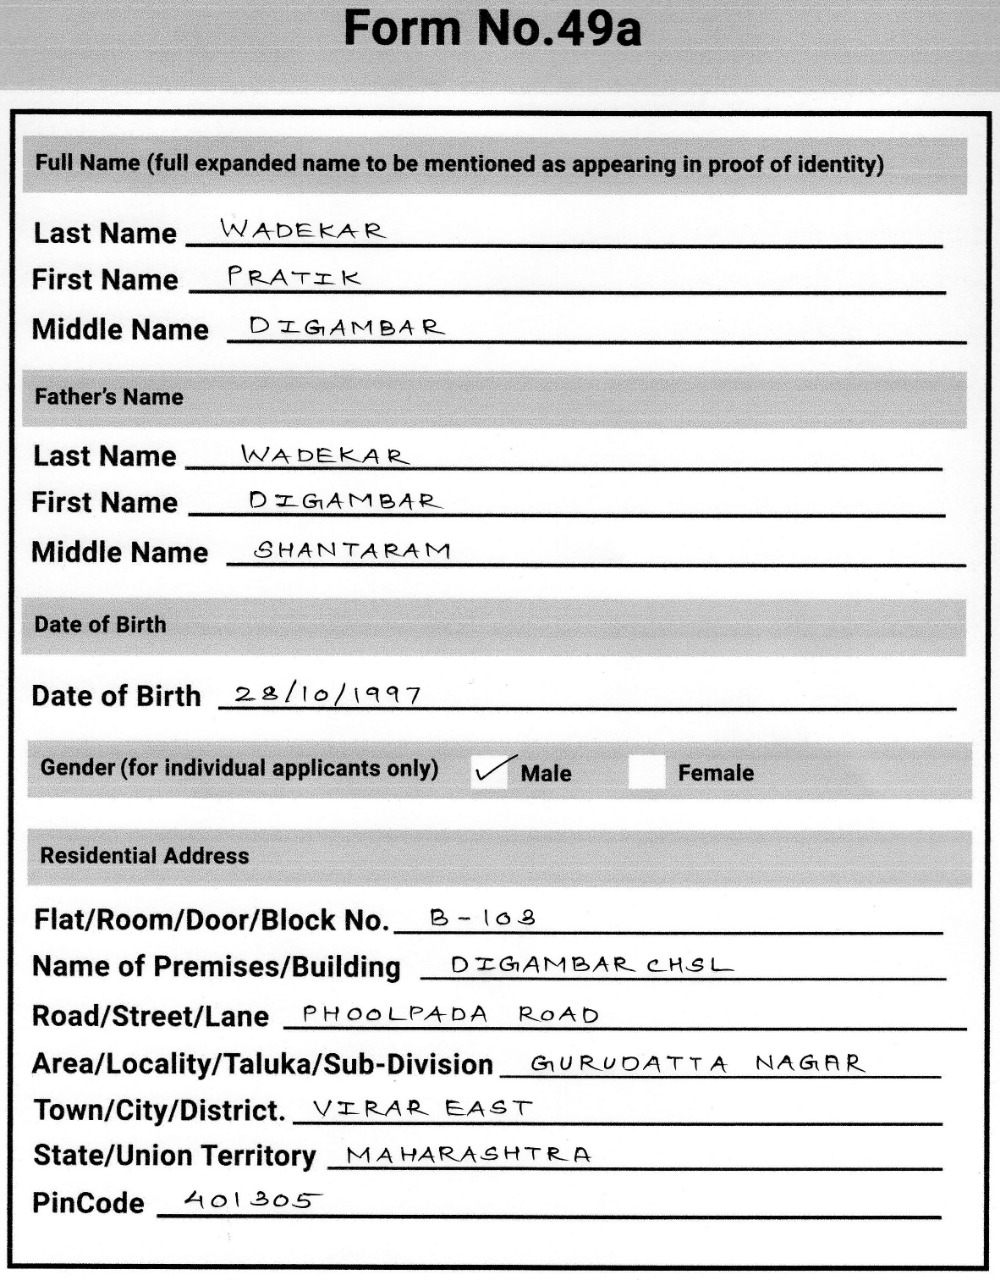 Form No.49a
Full Name (full expanded name to be mentioned as appearing in proof of identity)
Last Name WADEKAR
First Name PRATIK
Middle Name DIGAMBAR
Father's Name
Last Name WADEKAR
First Name DIGAMBAR
Middle Name SHANTARAM
Date of Birth
Date of Birth 28/10/1997
Gender (for individual applicants only) ✓ Male Female
Residential Address
Flat/Room/Door/Block No. B-103
Name of Premises/Building DIGAMBAR CHSL
Road/Street/Lane PHOOLPADA ROAD
Area/Locality/Taluka/Sub-Division GURUDATTA NAGAR
Town/City/District. VIRAR EAST
State/Union Territory MAHARASHTRA
PinCode 401305